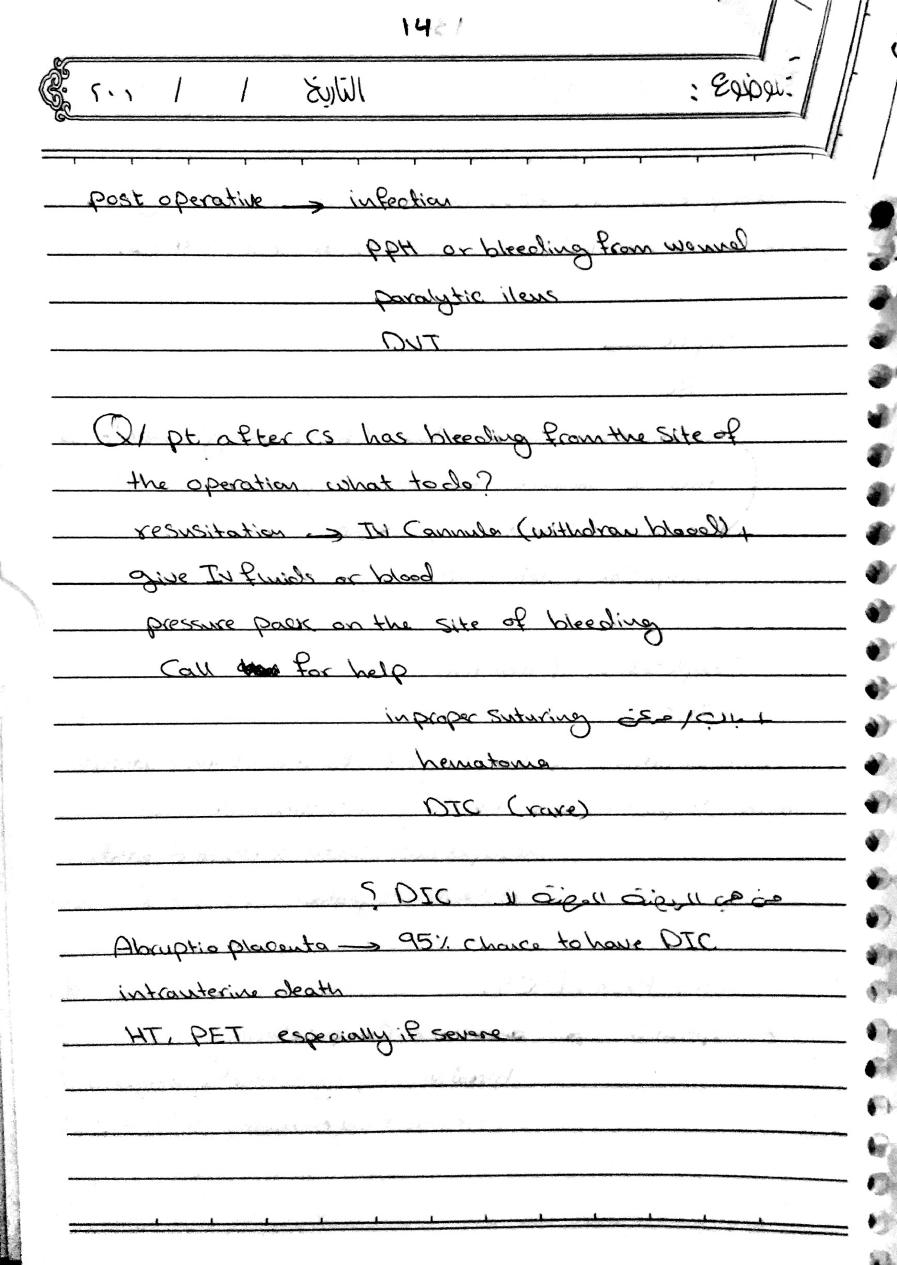 14
الموضوع :
التاريخ / / ٢٠١
post operative → infection
PPH or bleeding from wound
paralytic ileus
DVT
Q/ pt after CS has bleeding from the site of
the operation what to do?
resusitation → IV Cannula (withdraw blood) +
give IV fluids or blood
pressure pack on the site of bleeding
Call for help
inproper suturing
hematoma
DIC (rare)
من هي المريضة المعرضة لل DIC ؟
Abruptio placenta → 95% chance to have DIC
intrauterine death
HT, PET especially if severe